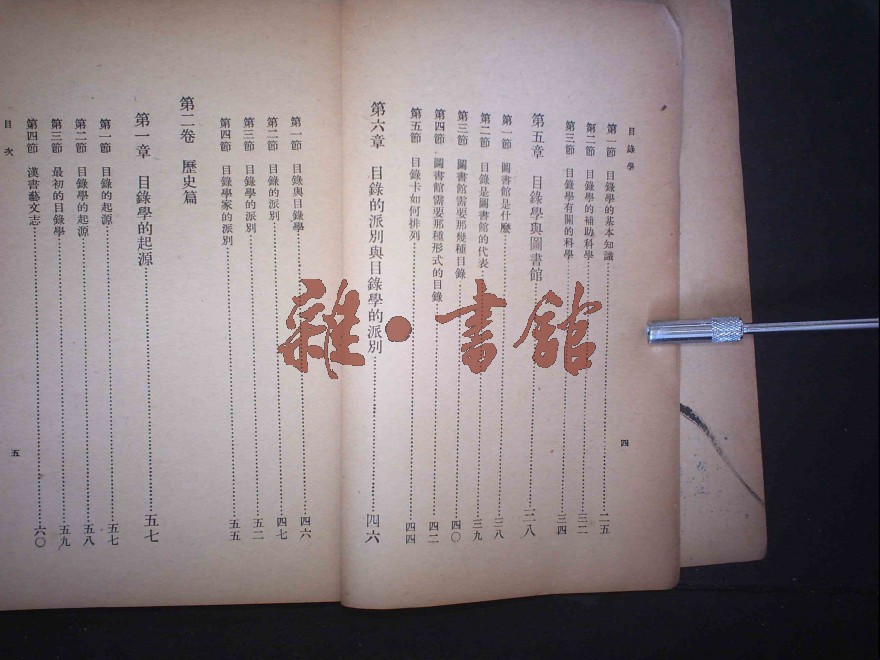 目錄學
四
第一節 目錄學的基本知識 二五
第二節 目錄學的補助科學 三二
第三節 目錄學有關的科學 三四
第五章 目錄學與圖書館 三八
第一節 圖書館是什麼 三八
第二節 目錄是圖書館的代表 三九
第三節 圖書館需要那幾種目錄 四〇
第四節 圖書館需要那種形式的目錄 四二
第五節 目錄卡如何排列 四四
第六章 目錄的派別與目錄學的派別 四六
第一節 目錄與目錄學 四六
第二節 目錄的派別 四七
第三節 目錄學的派別 五二
第四節 目錄學家的派別 五五
第二卷 歷史篇
第一章 目錄學的起源 五七
第一節 目錄的起源 五七
第二節 目錄學的起源 五八
第三節 最初的目錄學 五九
第四節 漢書藝文志 六〇
目次
五
雜·書館